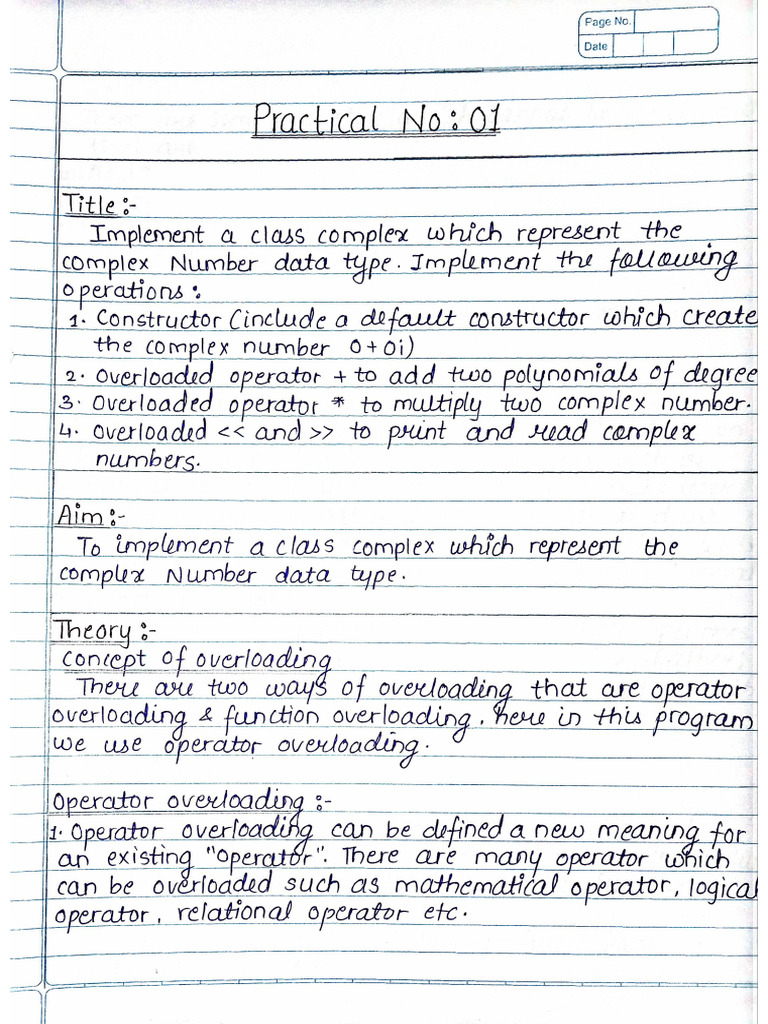 Page No.
Date
Practical No: 01
Title:-
Implement a class complex which represent the
complex Number data type. Implement the following
operations:
1. Constructor (include a default constructor which create
the complex number 0+0i)
2. Overloaded operator + to add two polynomials of degree
3. Overloaded operator * to multiply two complex number.
4. Overloaded << and >> to print and read complex
numbers.
Aim:-
To implement a class complex which represent the
complex Number data type.
Theory:-
Concept of overloading
There are two ways of overloading that are operator
overloading & function overloading, here in this program
we use operator overloading.
Operator overloading:-
1. Operator overloading can be defined a new meaning for
an existing "operator". There are many operator which
can be overloaded such as mathematical operator, logical
operator, relational operator etc.